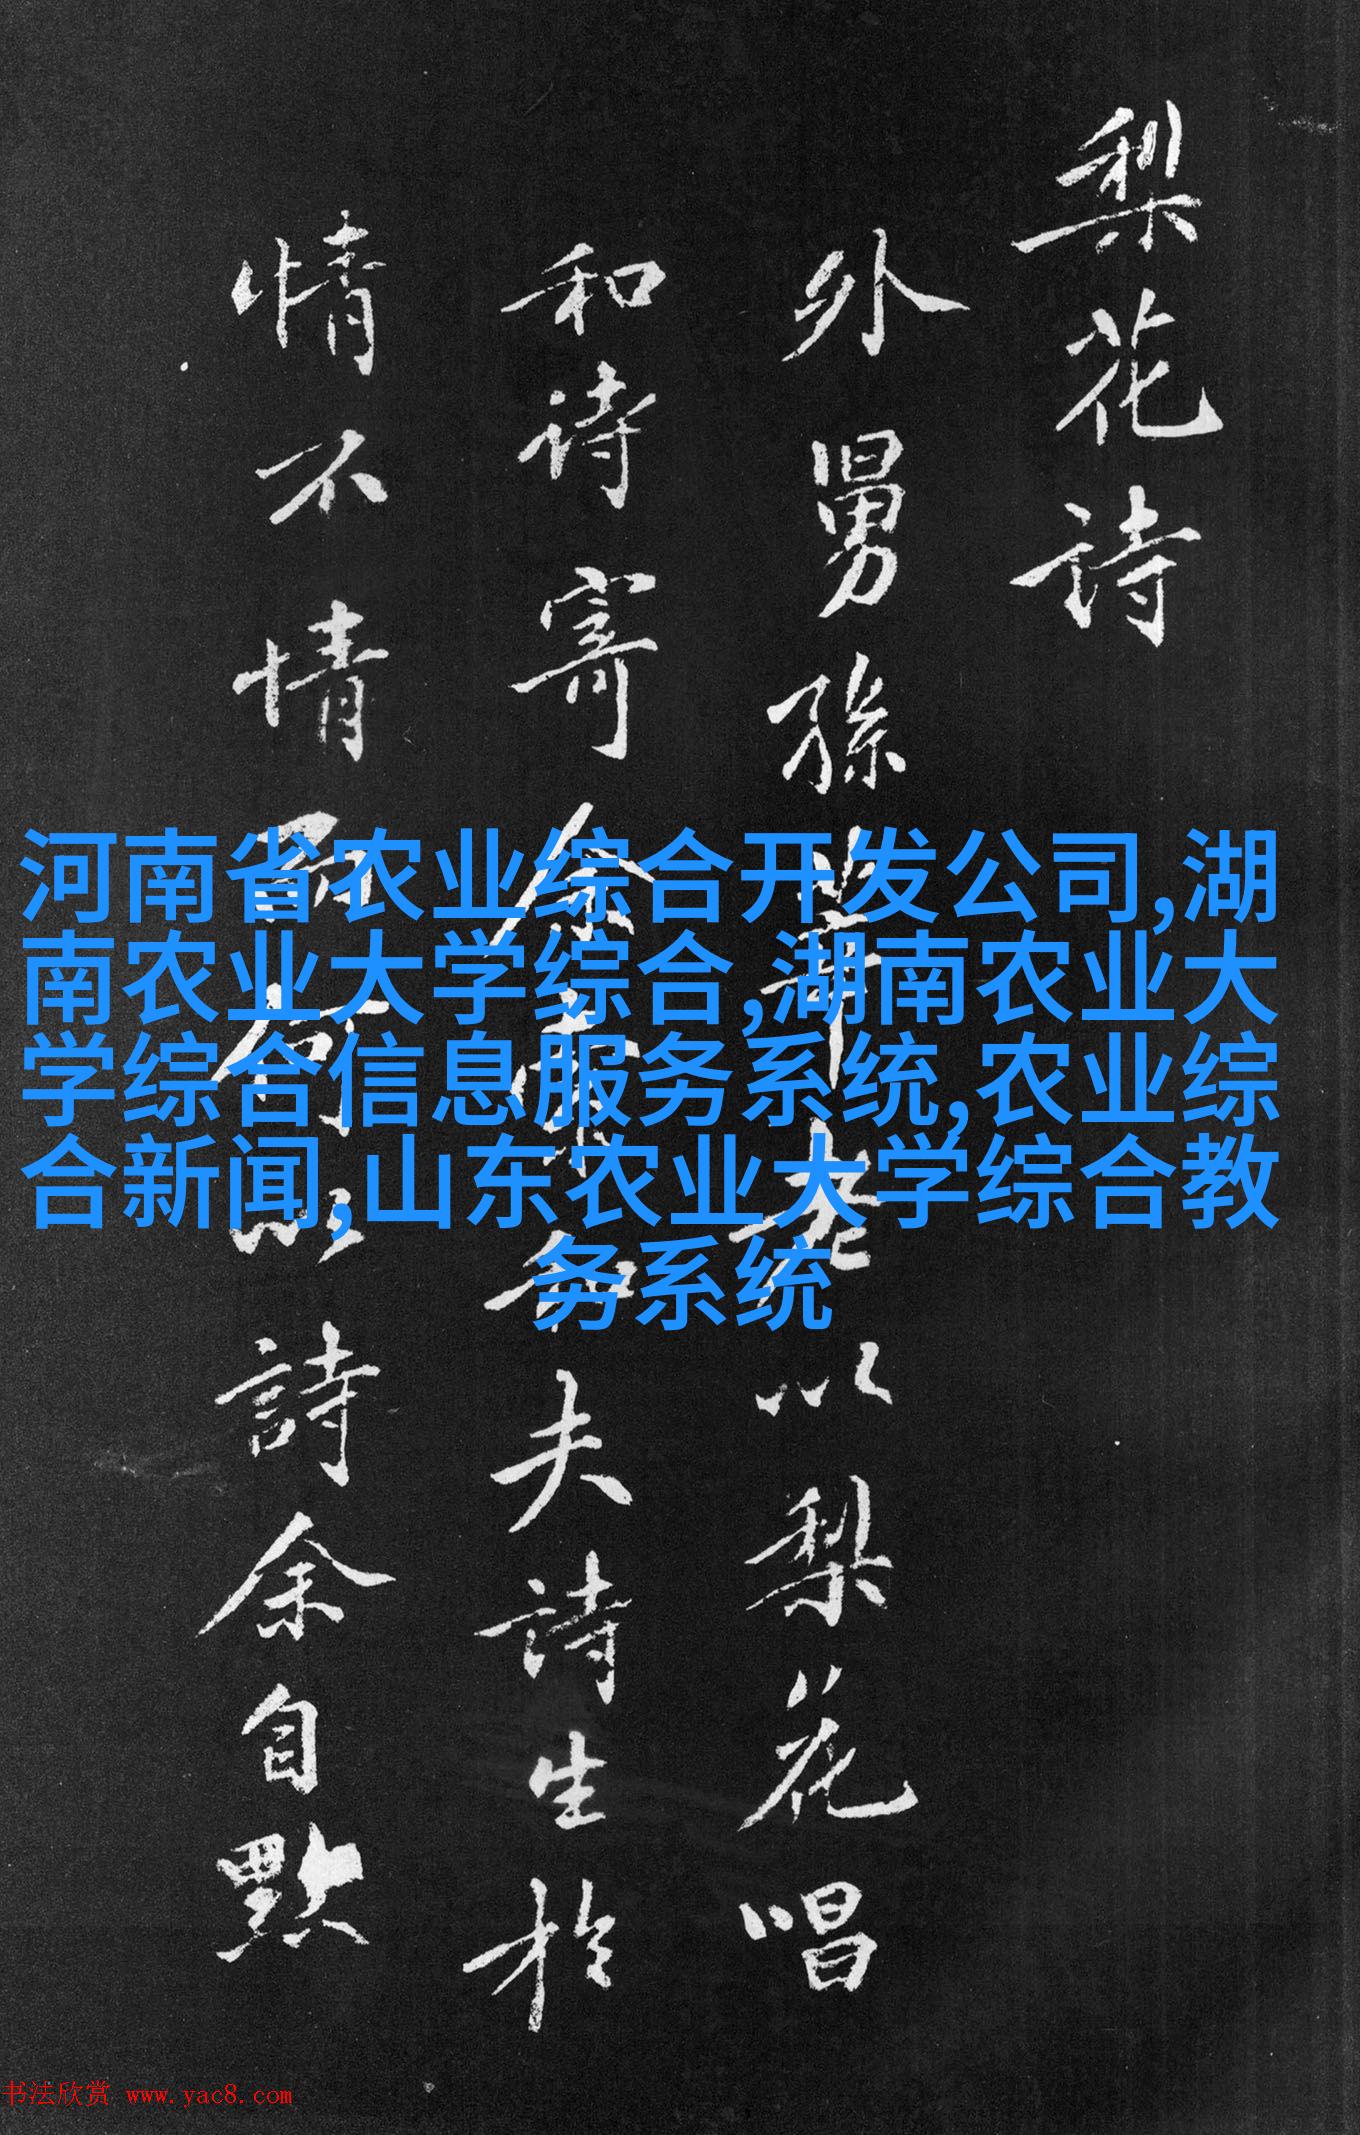 梨花诗
外舅孫莘老以梨花唱
和诗寄余余不和夫詩生於
情不情而何以詩余自點
河南省农业综合开发公司,湖
南农业大学综合,湖南农业大
学综合信息服务系统,农业综
合新闻,山东农业大学综合教
务系统
书法欣赏 www.yac8.com